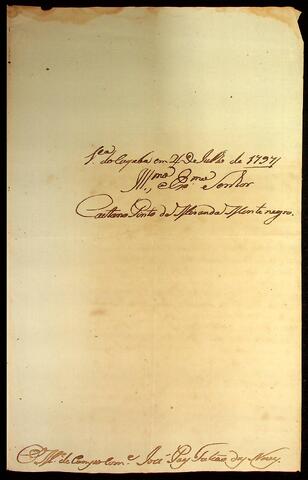 V.ª do Cuyaba em 21 de Julho de 1797
Ill.mo e Ex.mo Senhor
Caetano Pinto de Miranda Montenegro.
O M.e de Campo Com.e José Paes Falcão das Neves.